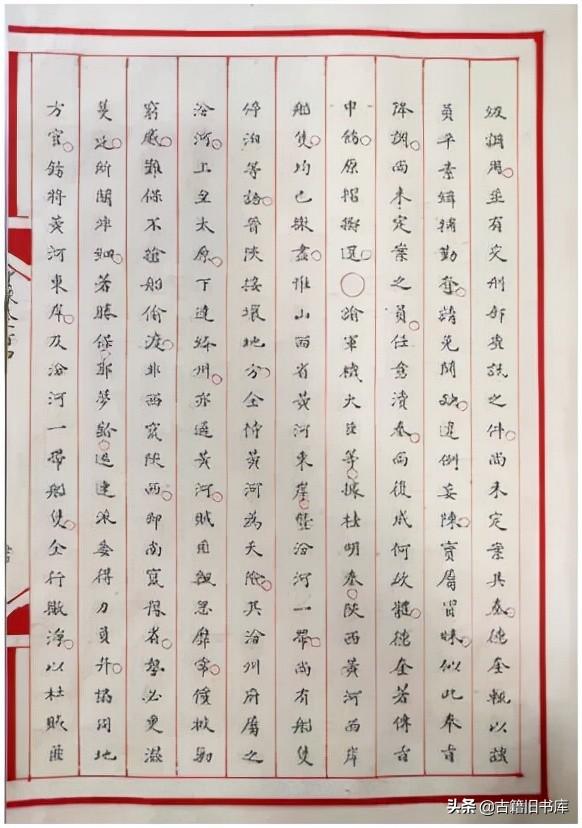 级调用○並有交刑部應議之件○尚未定案具奏○德奎輒以該
員平素緝捕勤奮○請免開缺○違例妄陳○實屬冒昧○似此奉旨
降調○而未定案之員○任意瀆奏○而後成何政體○德奎著傳旨
申飭○原摺擲還○○諭軍機大臣等○據杜明奏○陝西黃河西岸
船隻○均已撤盡○惟山西省黃河東岸○暨汾河一帶○尚有船隻
停泊等語○晉陝接壤地方○全恃黃河為天險○其沿州府屬之
汾河○上至太原○下達絳州○亦通黃河○賊困報忽靡常○倘被勦
窮蹙○難保不搶船偷渡○非西竄陝西○即尚竄豫省○勢必更滋
蔓延○所關非細○著勝保○那夢齡○迅速派委得力員弁○協同地
方官○飭將黃河東岸○及汾河一帶船隻○全行撤淨○以杜賊匪
頭条 @古籍旧书库